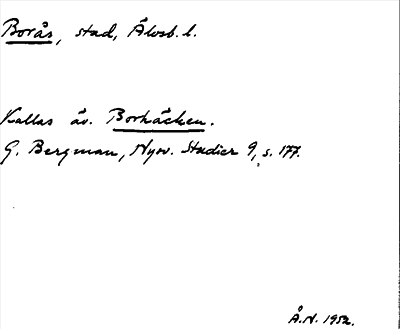 Borås, stad, Älvsb. l.
Kallas äv. Borhäcken.
G. Bergman, Nysv. Studier 9, s. 177.
Å.N. 1952.